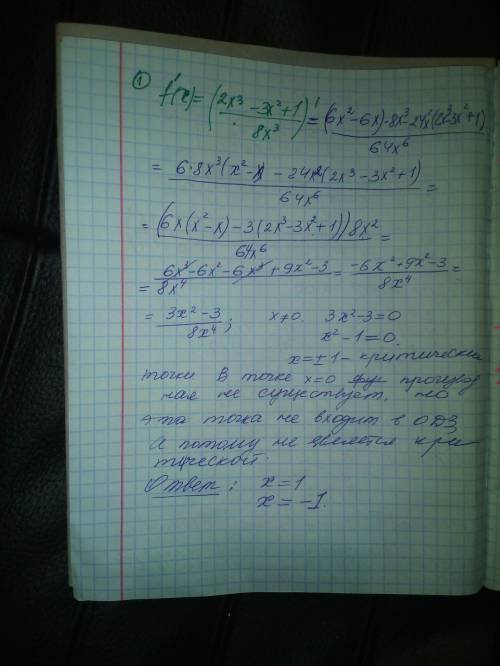 ①
f'(x) = (2x³ - 3x² + 1 / 8x³)' = (6x² - 6x)·8x³ - 24x²(2x³ - 3x² + 1) / 64x⁶
= 6·8x³(x² - x) - 24x²(2x³ - 3x² + 1) / 64x⁶ =
= (6x(x² - x) - 3(2x³ - 3x² + 1))8x² / 64x⁶ =
= 6x³ - 6x² - 6x³ + 9x² - 3 / 8x⁴ = -6x² + 9x² - 3 / 8x⁴ =
= 3x² - 3 / 8x⁴ ; x≠0, 3x² - 3 = 0
x² - 1 = 0
x = ±1 - критические
точки. В точке x=0 производ
ная не существует, но
эта точка не входит в ОДЗ,
а потому не является кри
тической.
Ответ: x = 1
x = -1.